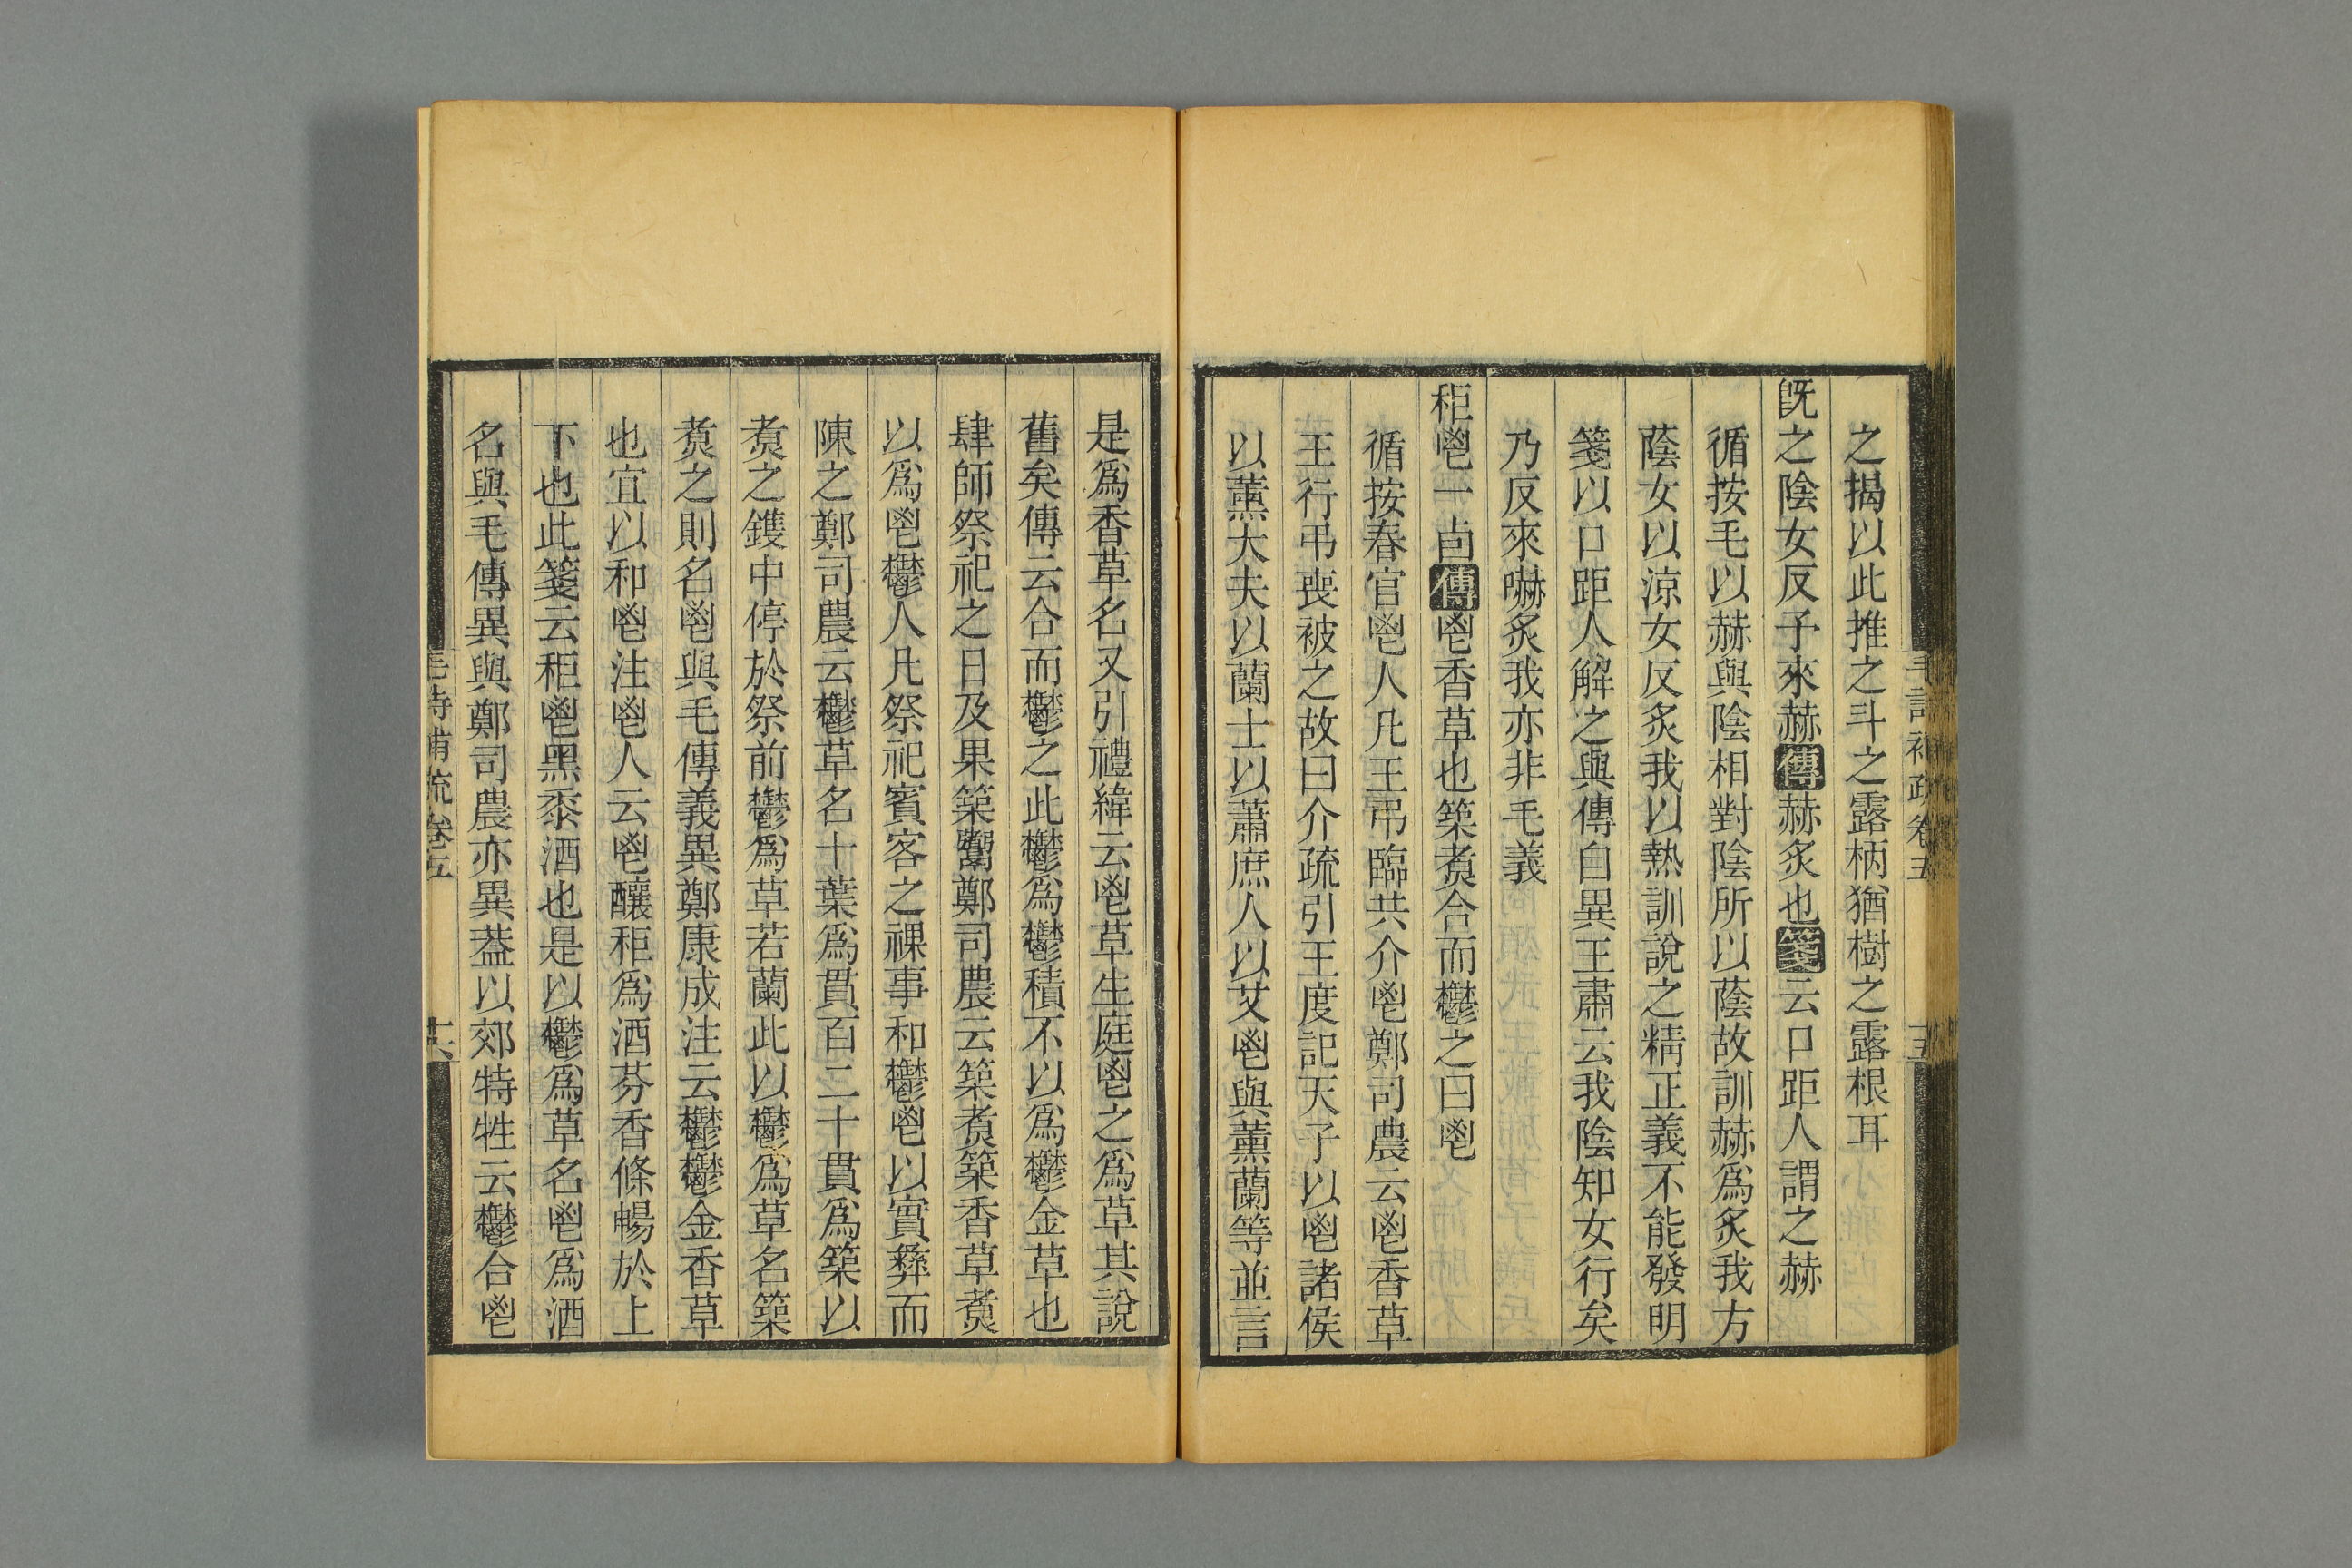 之揭以此推之斗之露柄猶樹之露根耳
旣之陰女反予來赫傳赫炙也箋云口距人謂之赫
循按毛以赫與陰相對陰所以蔭故訓赫爲炙我方
蔭女以涼女反炙我以熱訓說之精正義不能發明
箋以口距人解之與傳自異王肅云我陰知女行矣
乃反來嚇炙我亦非毛義
秬鬯一卣傳鬯香草也築煑合而鬱之曰鬯
循按春官鬯人凡王弔臨共介鬯鄭司農云鬯香草
王行弔喪被之故曰介疏引王度記天子以鬯諸侯
以薰大夫以蘭士以蕭庶人以艾鬯與薰蘭等並言
是爲香草名又引禮緯云鬯草生庭鬯之爲草其說
舊矣傳云合而鬱之此鬱爲鬱積不以爲鬱金草也
肆師祭祀之日及果築鬻鄭司農云築煑築香草煑
以爲鬯鬱人凡祭祀賓客之祼事和鬱鬯以實彝而
陳之鄭司農云鬱草名十葉爲貫百二十貫爲築以
煑之鑊中停於祭前鬱爲草若蘭此以鬱爲草名築
煑之則名鬯與毛傳義異鄭康成注云鬱鬱金香草
也宜以和鬯注鬯人云鬯釀秬爲酒芬香條暢於上
下也此箋云秬鬯黑黍酒也是以鬱爲草名鬯爲酒
名與毛傳異與鄭司農亦異葢以郊特牲云鬱合鬯
毛詩補疏卷五